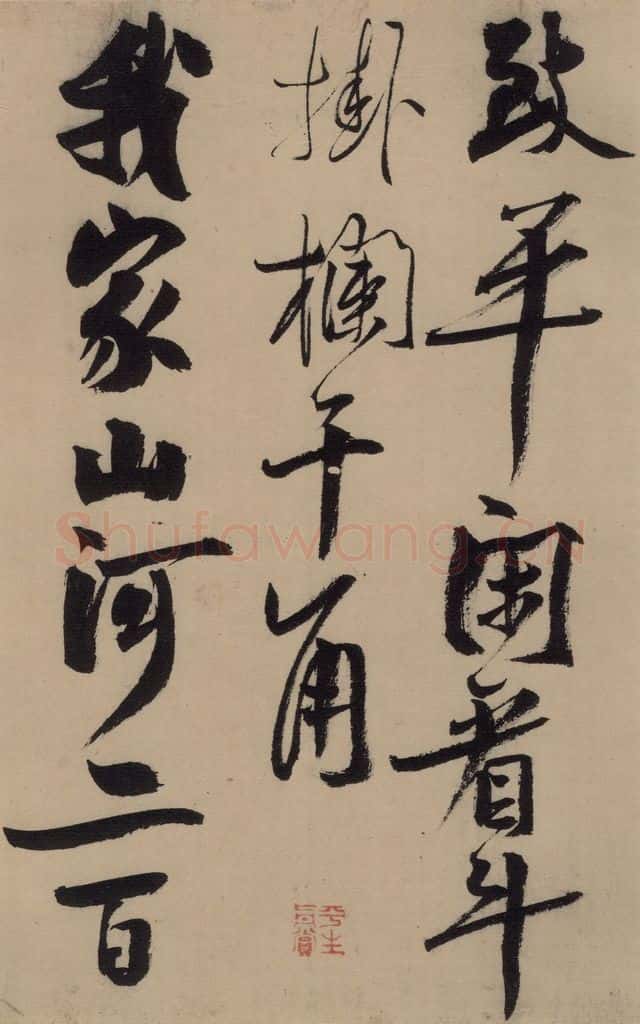 致平閑看斗
掛欄干角
我家山河二百
平生
真賞
Shufawang.CN